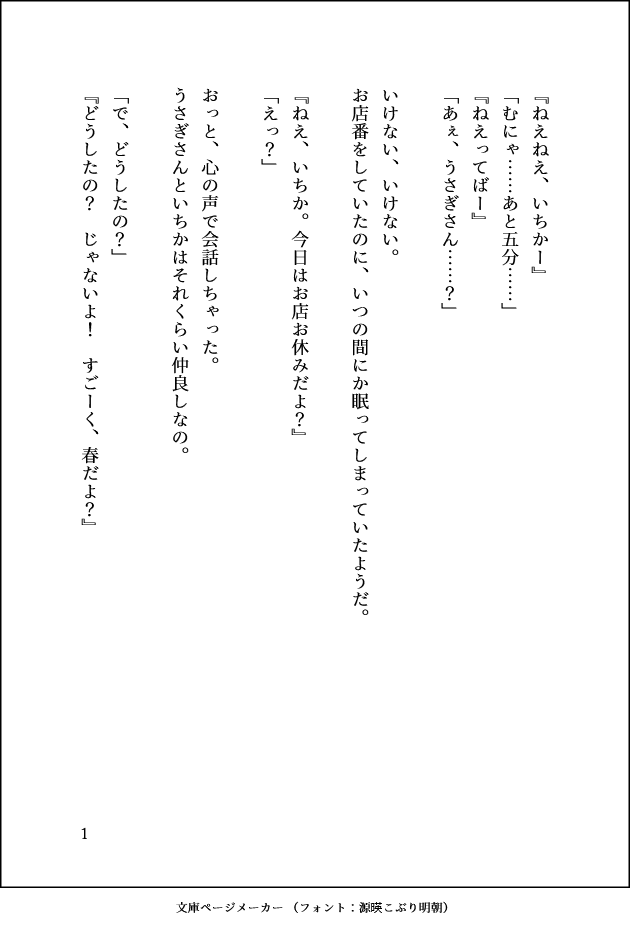 『ねえねえ、いちかー』
「むにゃ……あと五分……」
『ねえってばー』
「あぁ、うさぎさん……？」
いけない、いけない。
お店番をしていたのに、いつの間にか眠ってしまっていたようだ。
『ねえ、いちか。今日はお店お休みだよ？』
「えっ？」
おっと、心の声で会話しちゃった。
うさぎさんといちかはそれくらい仲良しなの。
「で、どうしたの？」
『どうしたの？　じゃないよ！　すごーく、春だよ？』
1
文庫ページメーカー （フォント：源暎こぶり明朝）